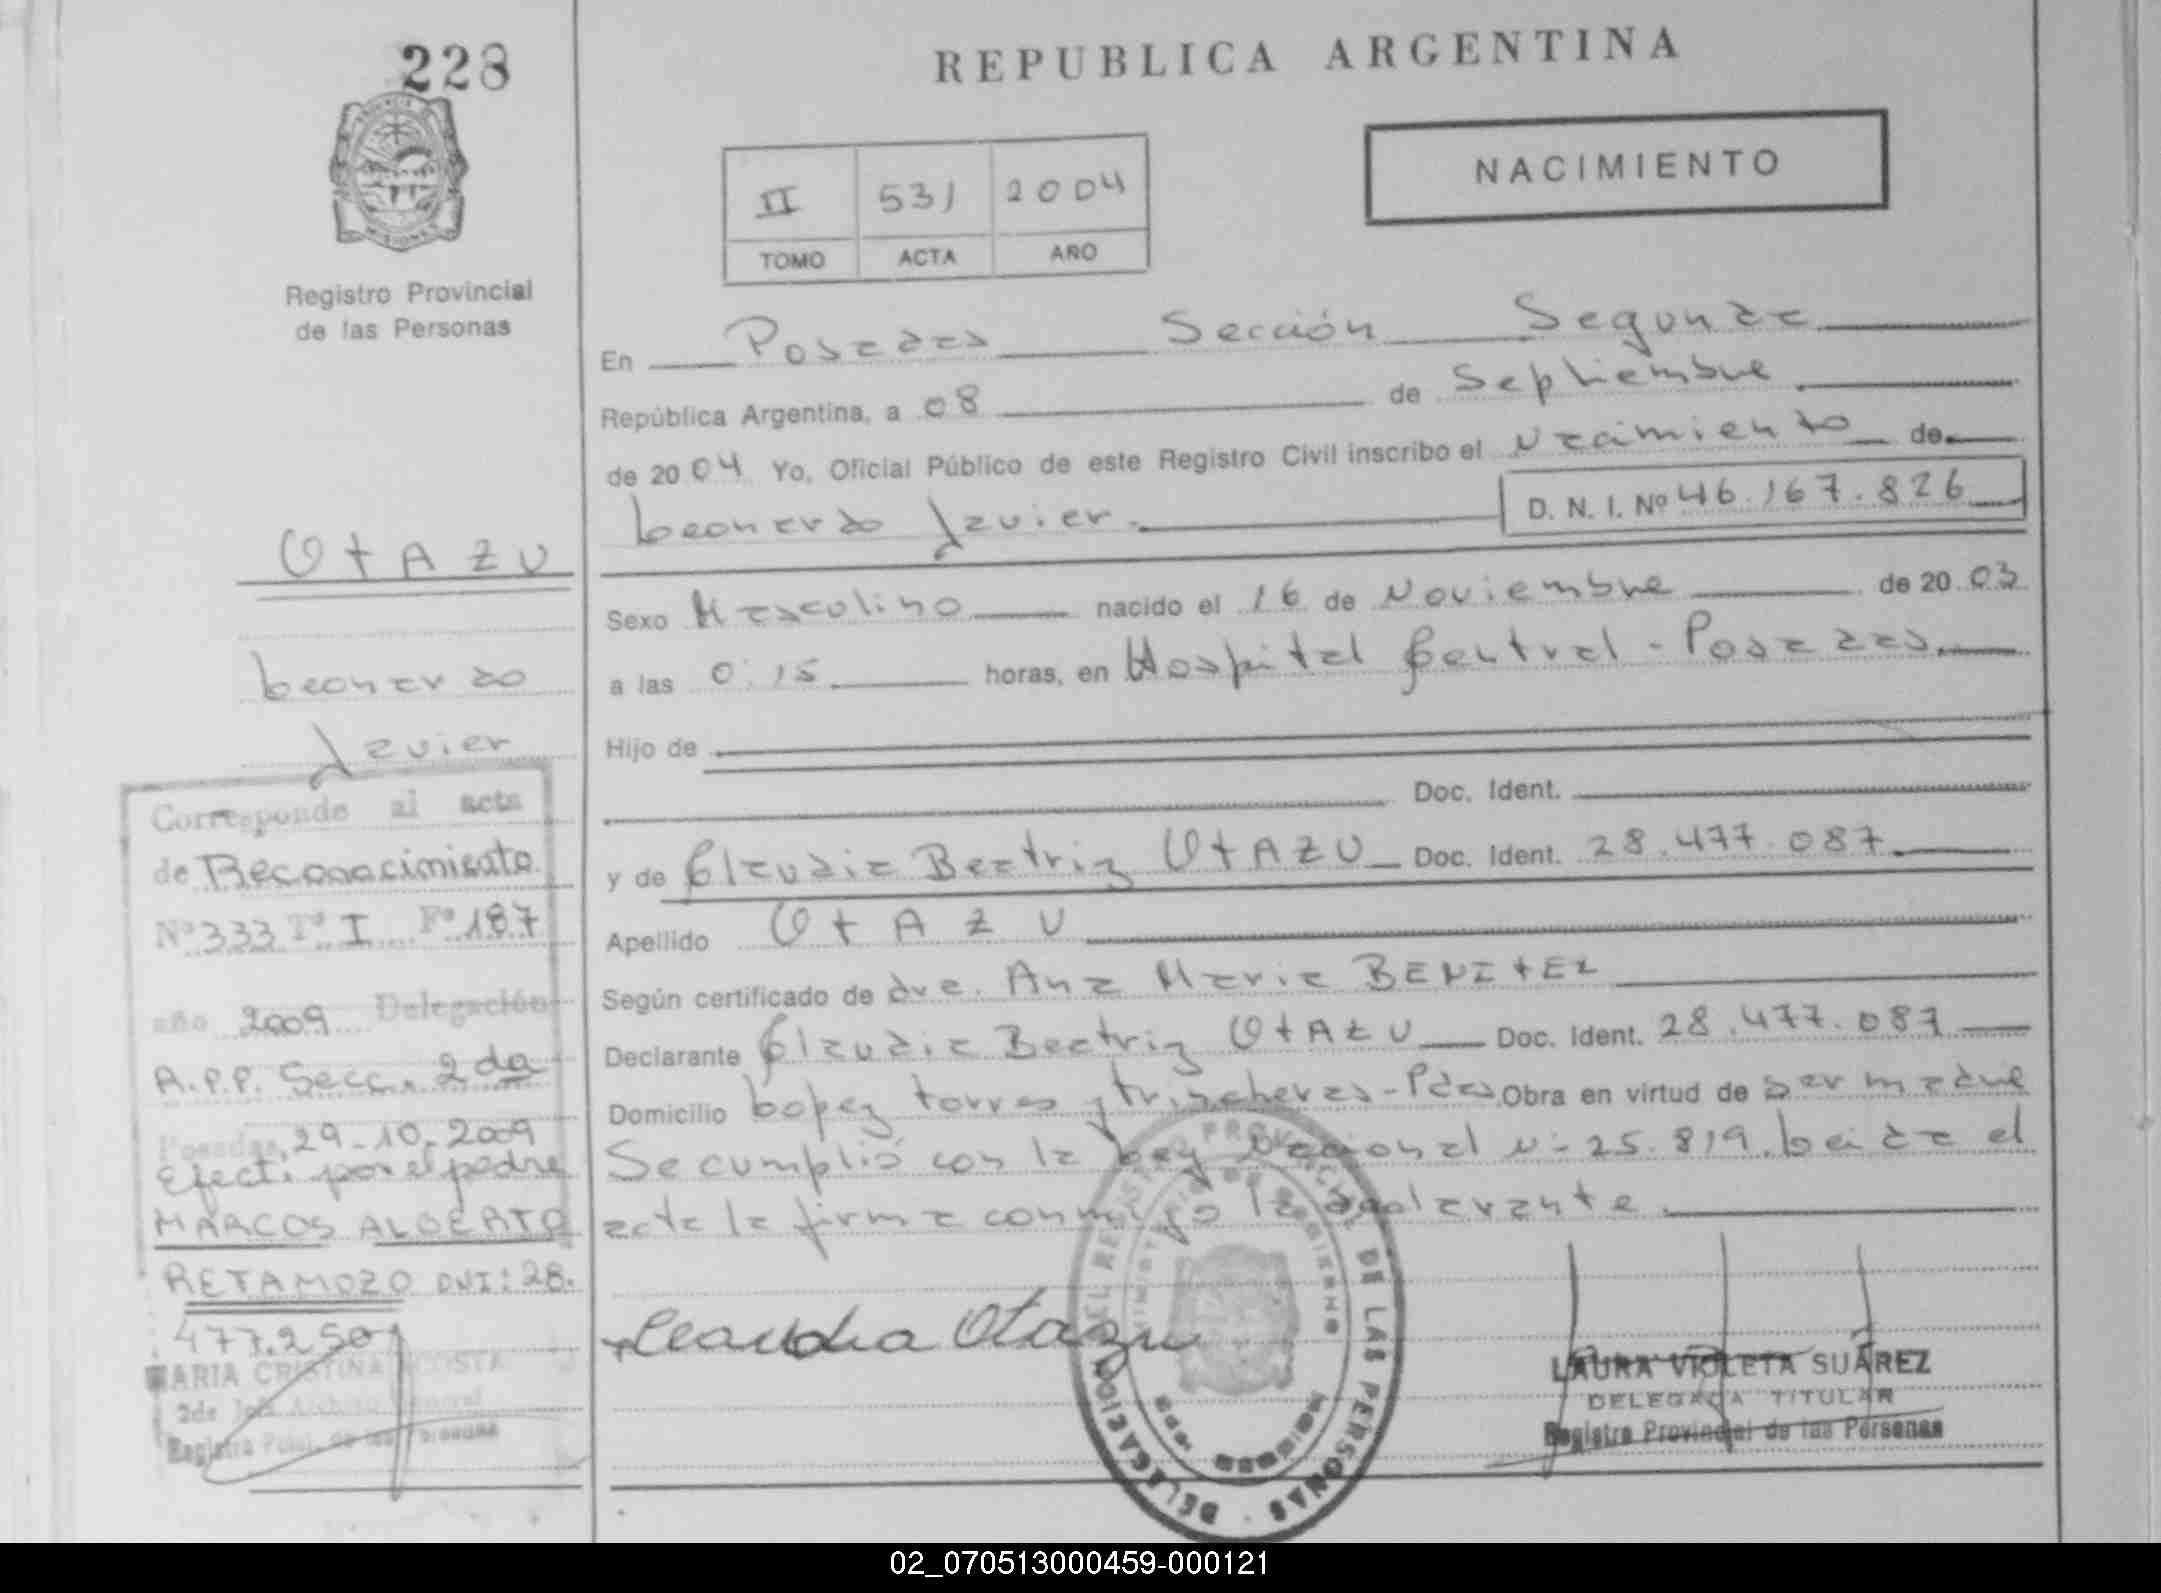 228
Registro Provincial
de las Personas
REPUBLICA ARGENTINA
NACIMIENTO
II 531 2004
TOMO ACTA AÑO
En Posadas Sección Segunda
República Argentina, a 08 de Septiembre
de 2004 Yo, Oficial Público de este Registro Civil inscribo el Nacimiento de
Leonardo Javier. D. N. I. Nº 46.167.826
Sexo Masculino nacido el 16 de Noviembre de 2003
a las 0:15 horas, en Hospital Central - Posadas.
Hijo de
Doc. Ident.
y de Claudia Beatriz OtAZU Doc. Ident. 28.477.087.
Apellido OtAZU
Según certificado de dra. Ana Maria BENItEZ
Declarante Claudia Beatriz OtAZU Doc. Ident. 28.477.087
Domicilio Lopez torres y trincheras - Pdas Obra en virtud de ser madre
Se cumplió con la Ley Nacional Nº 25.819. Leida el
acta la firma conmigo la declarante.
Claudia Otazu
DELEGACION DEL REGISTRO PROVINCIAL DE LAS PERSONAS
MINISTERIO DE GOBIERNO
LAURA VIOLETA SUAREZ
DELEGADA TITULAR
Registro Provincial de las Personas
OtAZU
Leonardo
Javier
Corresponde al acta
de Reconocimiento
Nº 333 Tº I Fº 187
año 2009 Delegación
A.P.P. Secc. 2da
Posadas, 29-10-2009
Efect. por el padre
MARCOS ALBERTO
RETAMOZO DNI: 28.
477.250
MARIA CRISTINA ACOSTA
2da Jefa Archivo General
Registro Pcial. de las Personas
02_070513000459-000121